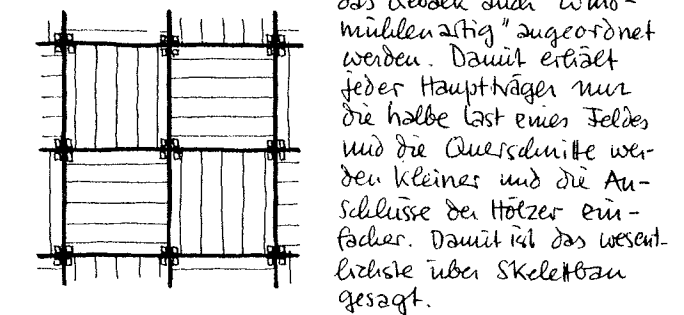 das Gebälk auch "wind-
mühlenartig" angeordnet
werden. Damit erhält
jeder Hauptträger nur
die halbe Last eines Feldes
und die Querschnitte wer-
den kleiner und die An-
schlüsse der Hölzer ein-
facher. Damit ist das wesent-
lichste über Skelettbau
gesagt.